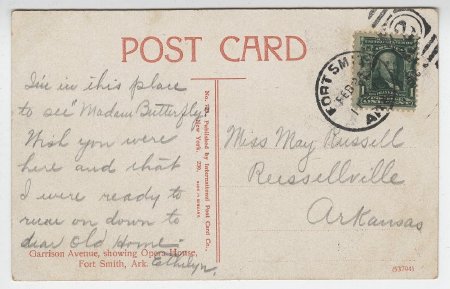 POST CARD
I'm in this place
to see "Madam Butterfly
Wish you were
here and that
I were ready to
run on down to
dear old Home-
Ethelyn.
Garrison Avenue, showing Opera House,
Fort Smith, Ark.
Published by International Post Card Co.,
New York.
FORT SM
FEB
ARK
1
Miss May Russell
Russellville
Arkansas